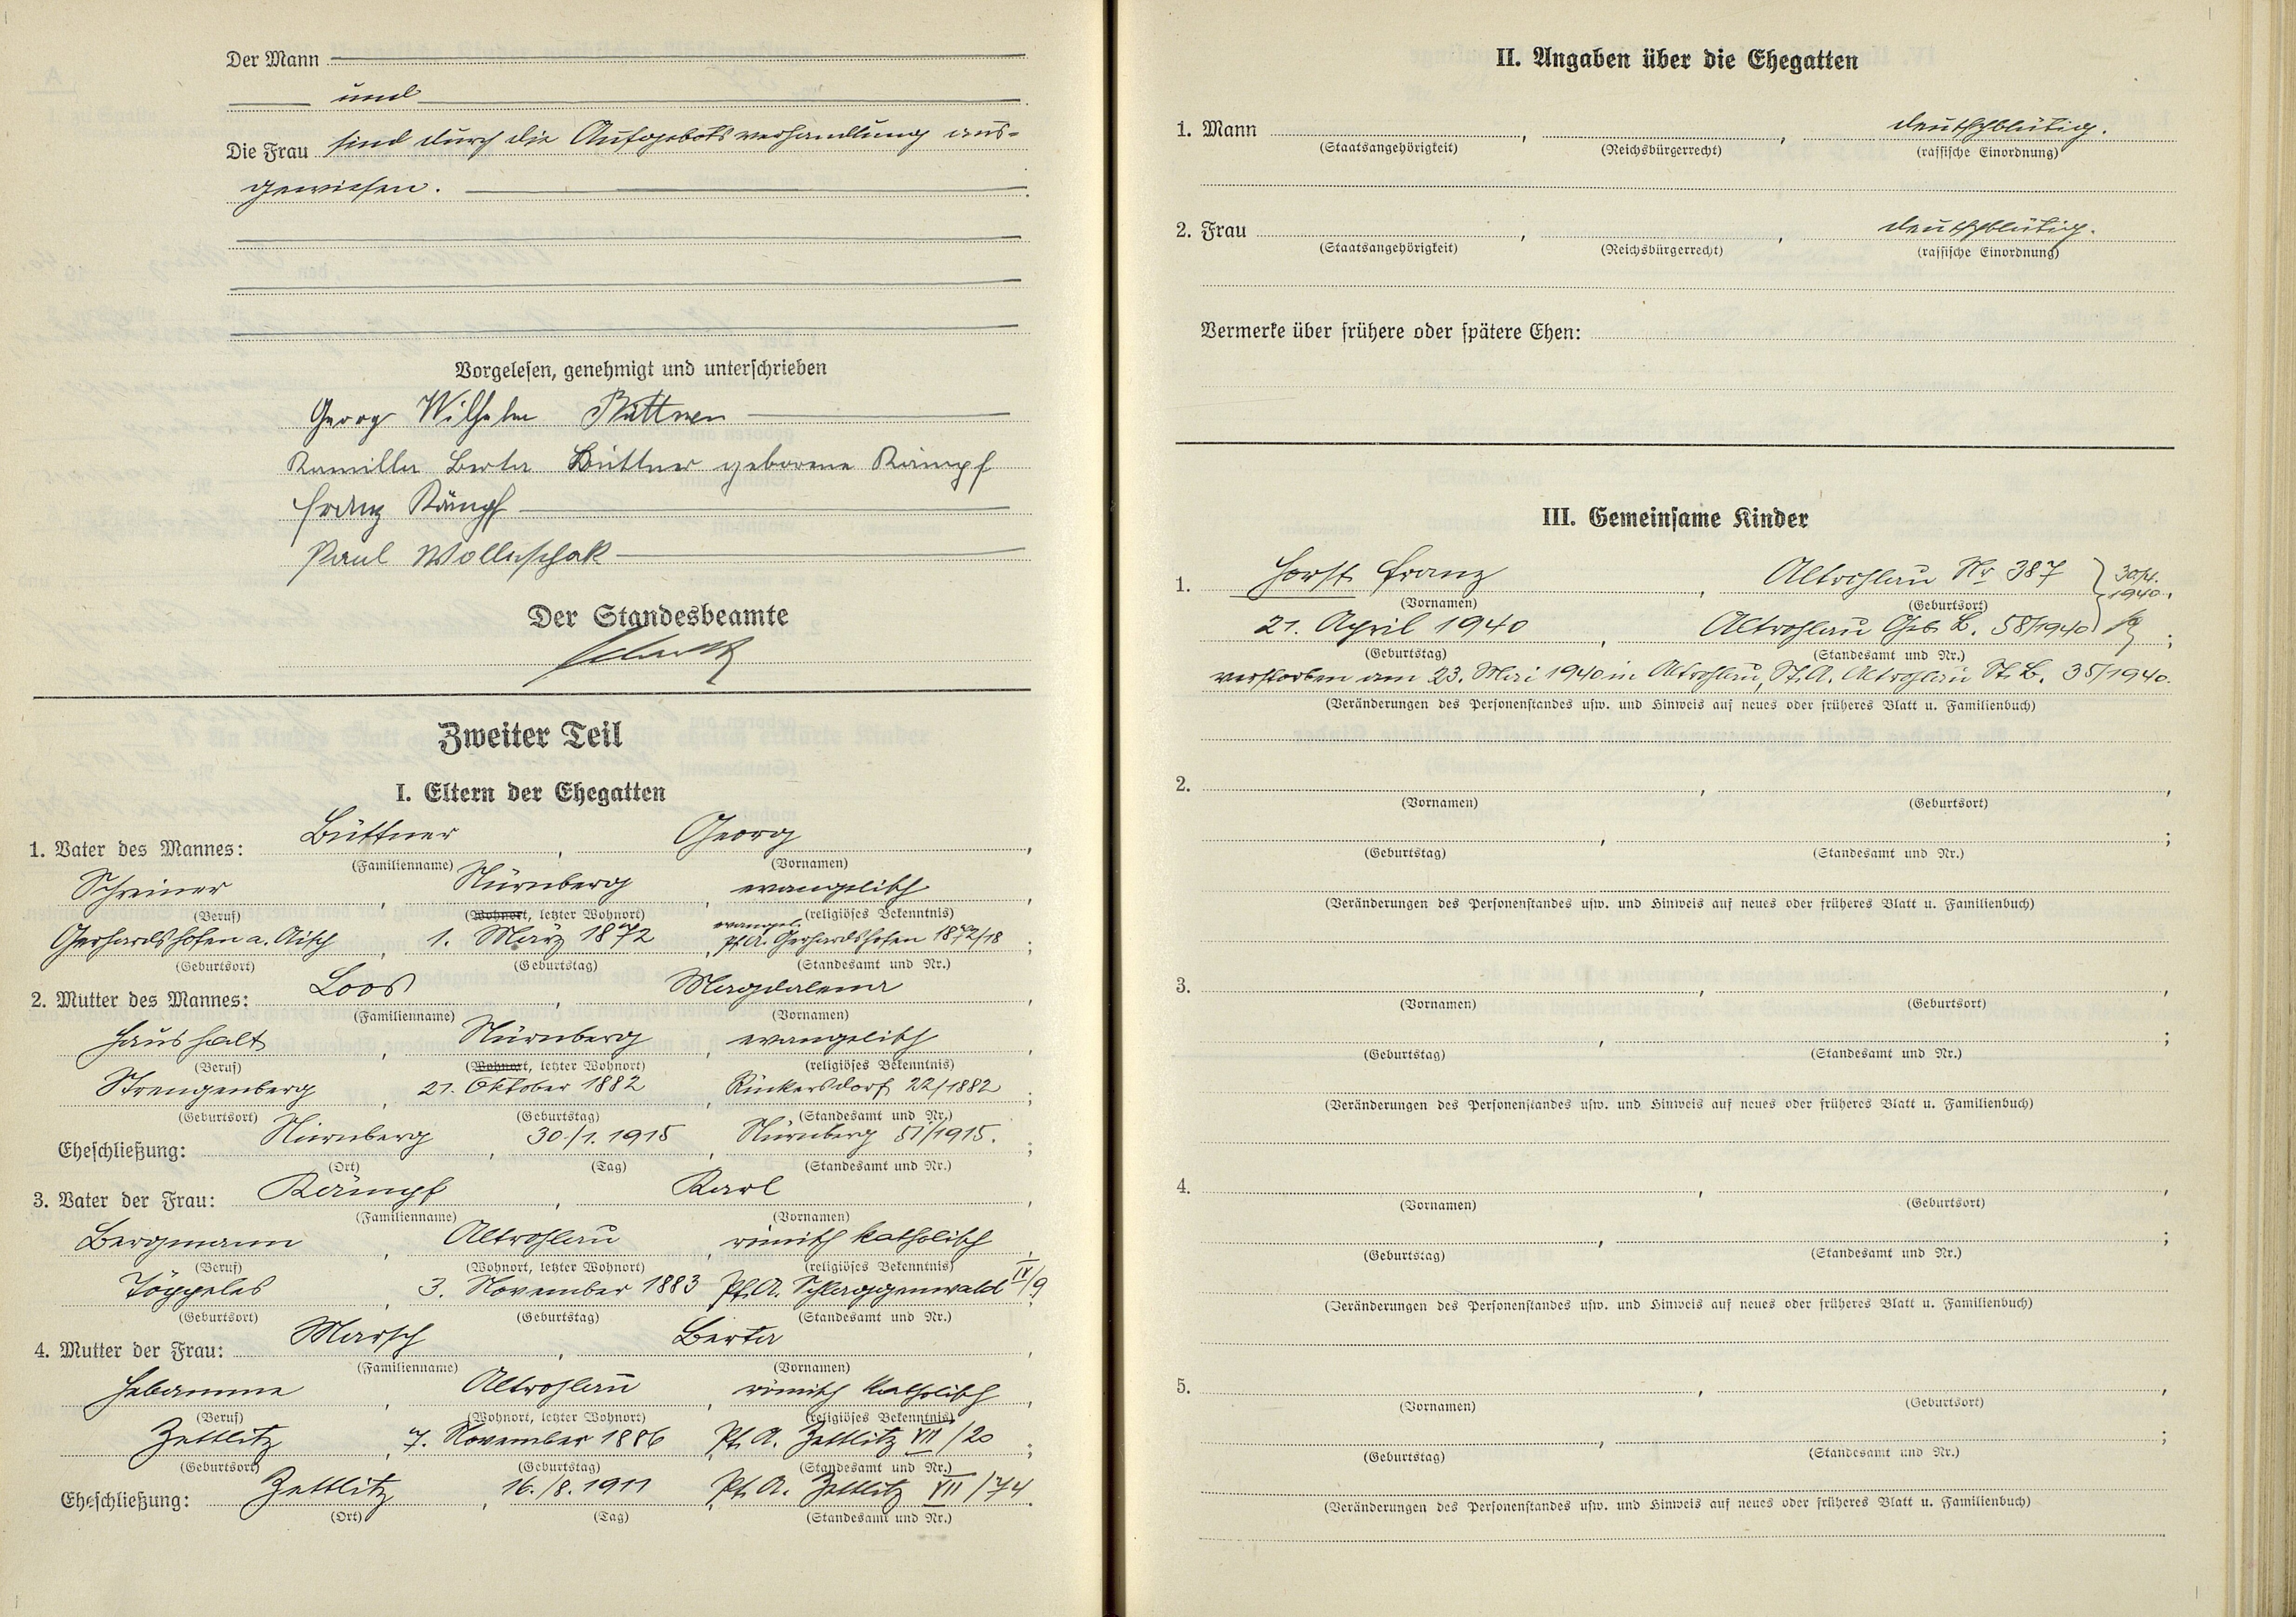 Der Mann
und
Die Frau sind durch die Aufgebotsverhandlung aus-
gewiesen.
Vorgelesen, genehmigt und unterschrieben
Georg Wilhelm Büttner
Kamilla Berta Büttner geborene Kämpf
Franz Kämpf
Paul Wollnschak
Der Standesbeamte
Zweiter Teil
I. Eltern der Ehegatten
Büttner Georg
1. Vater des Mannes: , ,
(Familienname) (Vornamen)
Schreiner , Nürnberg , evangelisch ,
(Beruf) (Wohnort, letzter Wohnort) (religiöses Bekenntnis)
evangel.
Gerhardshofen a. Aisch , 1. März 1872 , Pf.A. Gerhardshofen 1872/18 ;
(Geburtsort) (Geburtstag) (Standesamt und Nr.)
2. Mutter des Mannes: Loos , Magdalena ,
(Familienname) (Vornamen)
Haushalt , Nürnberg , evangelisch ,
(Beruf) (Wohnort, letzter Wohnort) (religiöses Bekenntnis)
Strengenberg , 21. Oktober 1882 , Rinkersdorf 22/1882 ;
(Geburtsort) (Geburtstag) (Standesamt und Nr.)
Eheschließung: Nürnberg , 30./1. 1915 , Nürnberg 51/1915. ;
(Ort) (Tag) (Standesamt und Nr.)
3. Vater der Frau: Kämpf , Karl ,
(Familienname) (Vornamen)
Bergmann , Altrohlau , römisch katholisch ,
(Beruf) (Wohnort, letzter Wohnort) (religiöses Bekenntnis)
Töppeles , 3. November 1883 Pf.A. Schlaggenwald IV/9
(Geburtsort) (Geburtstag) (Standesamt und Nr.)
4. Mutter der Frau: Marsch , Berta ,
(Familienname) (Vornamen)
Hebamme , Altrohlau , römisch katholisch ,
(Beruf) (Wohnort, letzter Wohnort) (religiöses Bekenntnis)
Zettlitz , 7. November 1886 , Pf. A. Zettlitz VII/20 ;
(Geburtsort) (Geburtstag) (Standesamt und Nr.)
Eheschließung: Zettlitz , 16./8. 1911 , Pf. A. Zettlitz VII/74 .
(Ort) (Tag) (Standesamt und Nr.)
II. Angaben über die Ehegatten
1. Mann , , deutschblütig.
(Staatsangehörigkeit) (Reichsbürgerrecht) (rassische Einordnung)
2. Frau , , deutschblütig.
(Staatsangehörigkeit) (Reichsbürgerrecht) (rassische Einordnung)
Vermerke über frühere oder spätere Ehen:
III. Gemeinsame Kinder
1. Horst Franz , Altrohlau Nr 387 1940.
(Vornamen) (Geburtsort)
21. April 1940 , Altrohlau Geb. B. 58/1940 ;
(Geburtstag) (Standesamt und Nr.)
verstorben am 23. Mai 1940 in Altrohlau, St.A. Altrohlau St. B. 35/1940.
(Veränderungen des Personenstandes usw. und Hinweis auf neues oder früheres Blatt u. Familienbuch)
2. , ,
(Vornamen) (Geburtsort)
, ;
(Geburtstag) (Standesamt und Nr.)
(Veränderungen des Personenstandes usw. und Hinweis auf neues oder früheres Blatt u. Familienbuch)
3. , ,
(Vornamen) (Geburtsort)
, ;
(Geburtstag) (Standesamt und Nr.)
(Veränderungen des Personenstandes usw. und Hinweis auf neues oder früheres Blatt u. Familienbuch)
4. , ,
(Vornamen) (Geburtsort)
, ;
(Geburtstag) (Standesamt und Nr.)
(Veränderungen des Personenstandes usw. und Hinweis auf neues oder früheres Blatt u. Familienbuch)
5. , ,
(Vornamen) (Geburtsort)
, ;
(Geburtstag) (Standesamt und Nr.)
(Veränderungen des Personenstandes usw. und Hinweis auf neues oder früheres Blatt u. Familienbuch)